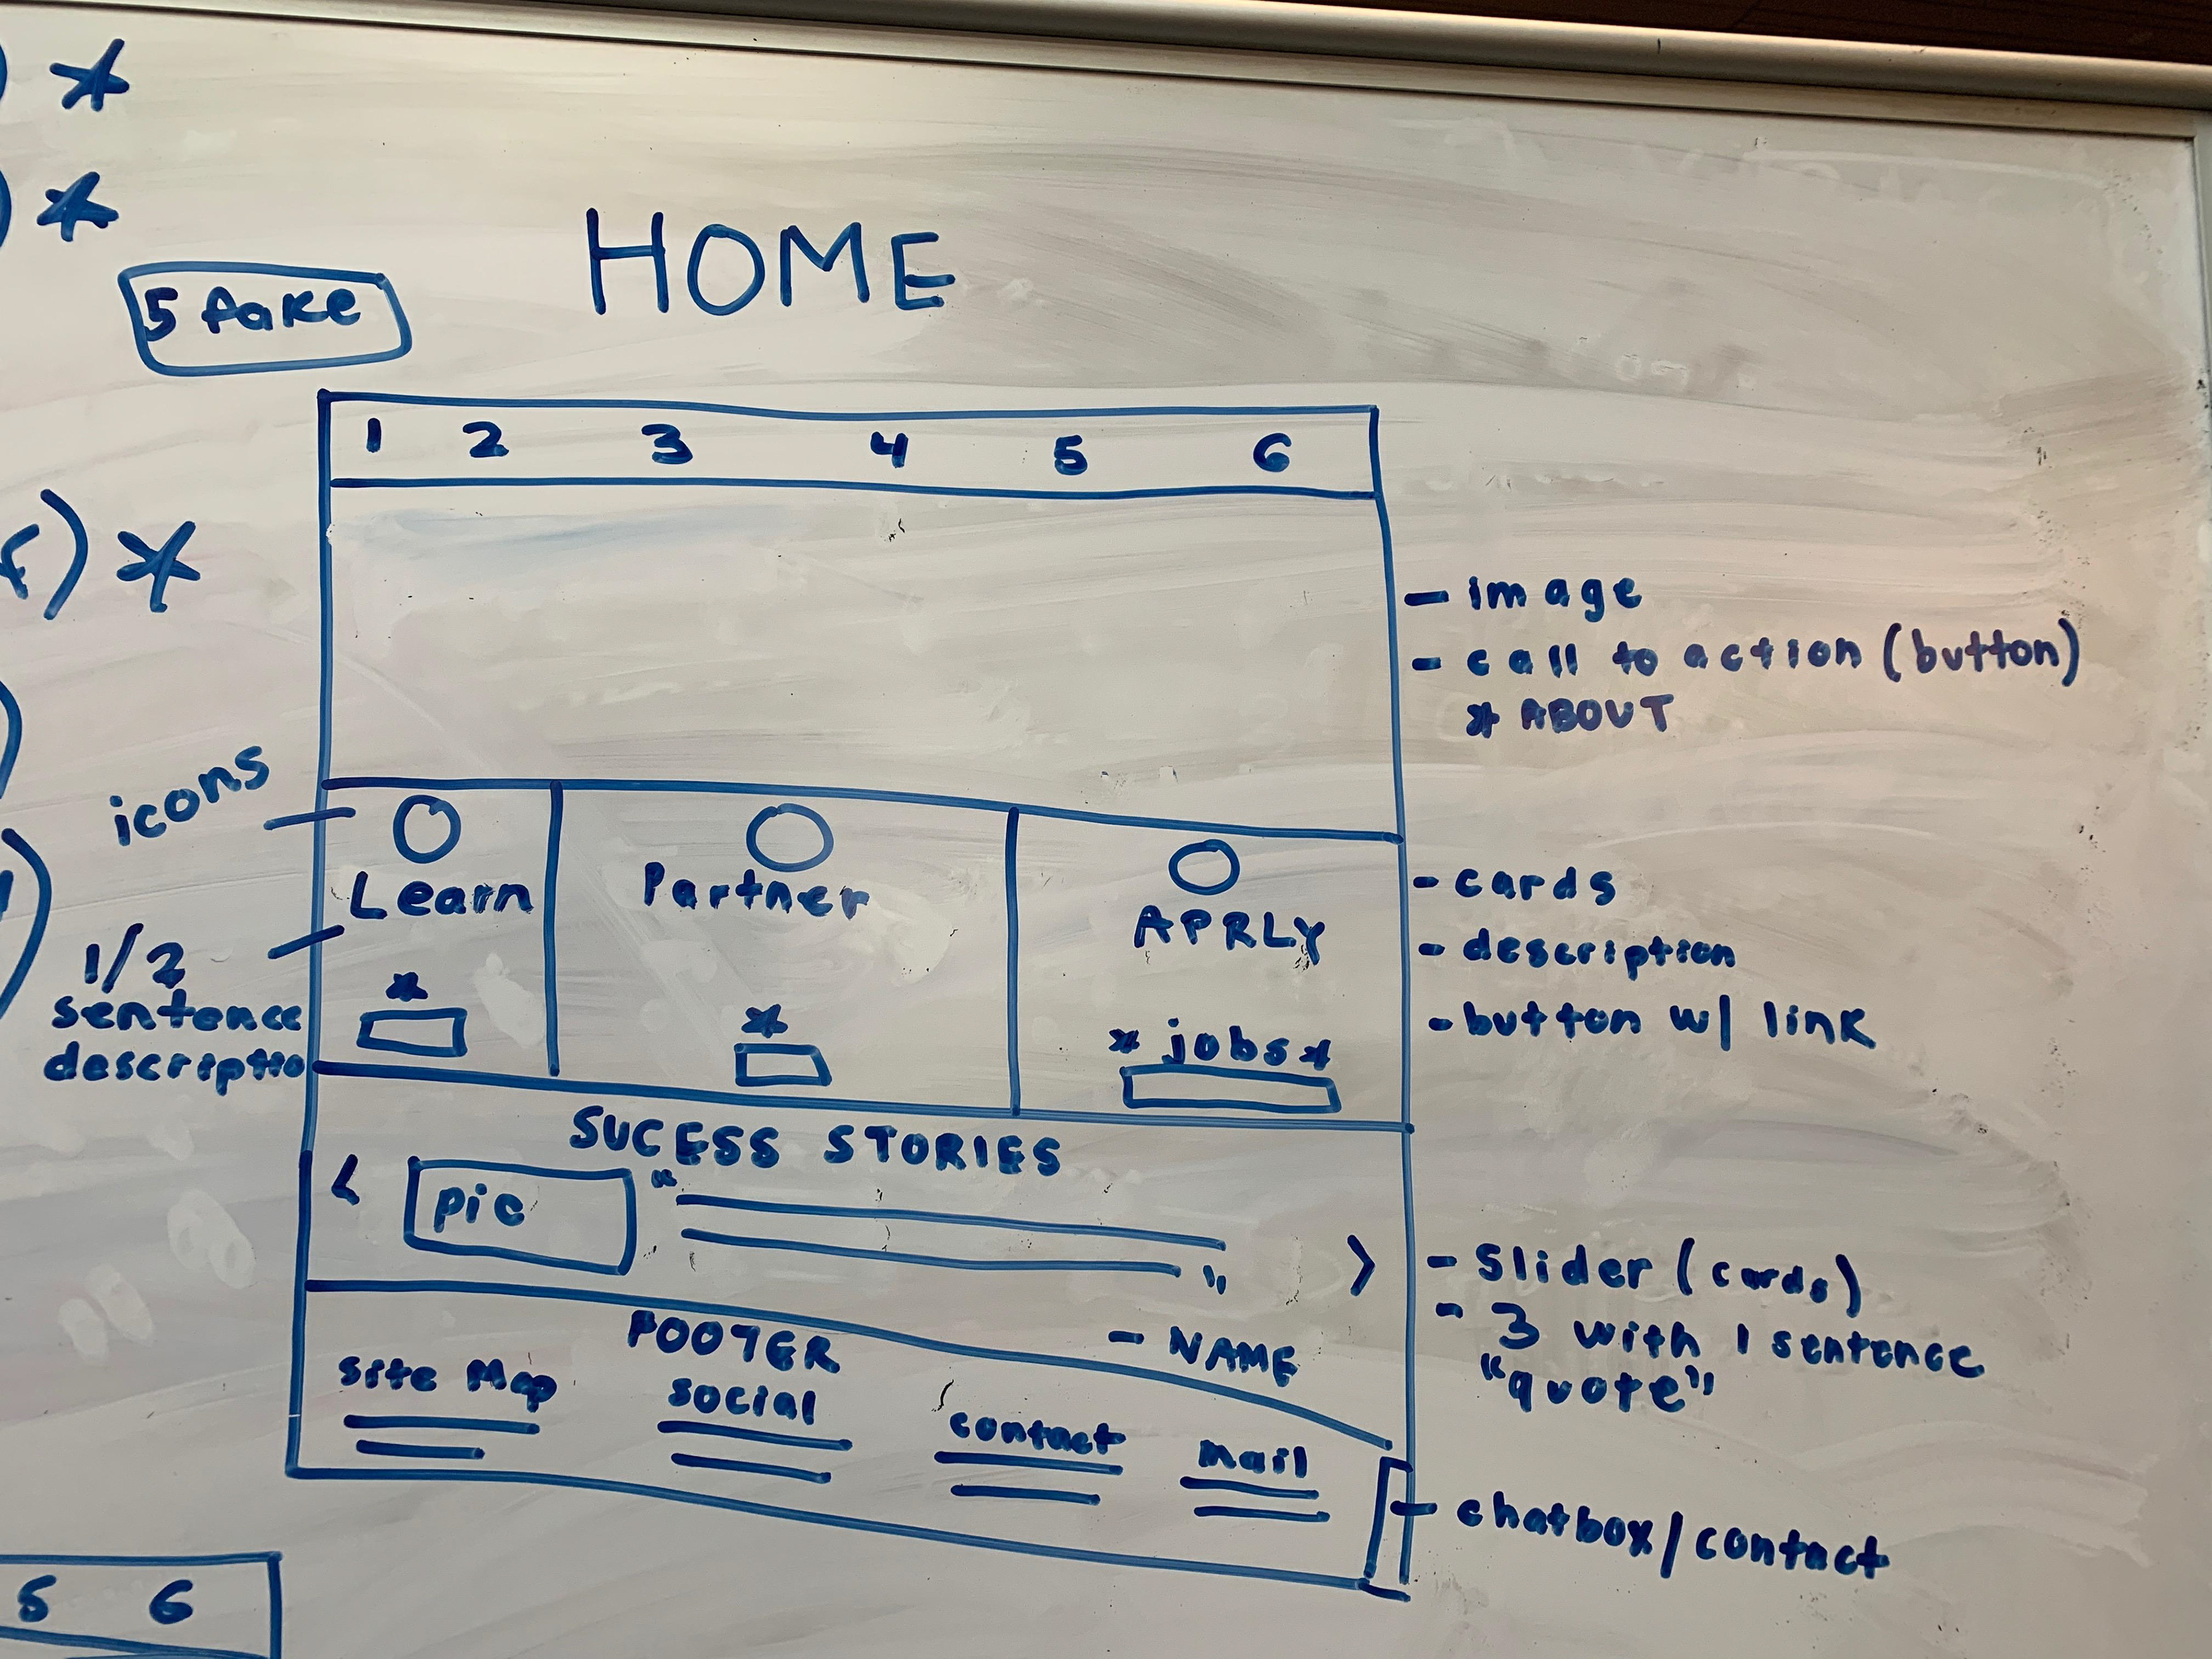 *
*
HOME
5 fake
1 2 3 4 5 6
f) *
- image
- call to action (button)
* ABOUT
icons
Learn
Partner
APPLY
1/2
sentence
descriptio
*
*
* jobs *
- cards
- description
- button w/ link
SUCESS STORIES
< pic “ ” >
- NAME
- Slider (cards)
- 3 with 1 sentence
"quote"
FOOTER
site Map
social
contact
mail
- chatbox/contact
5 6